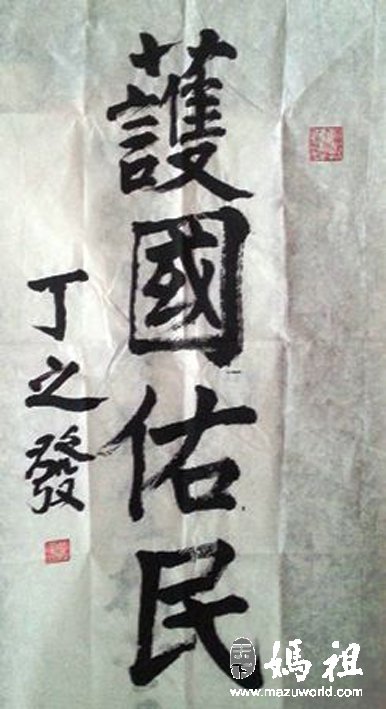 護國佑民
丁之發
媽祖
www.mazuworld.com